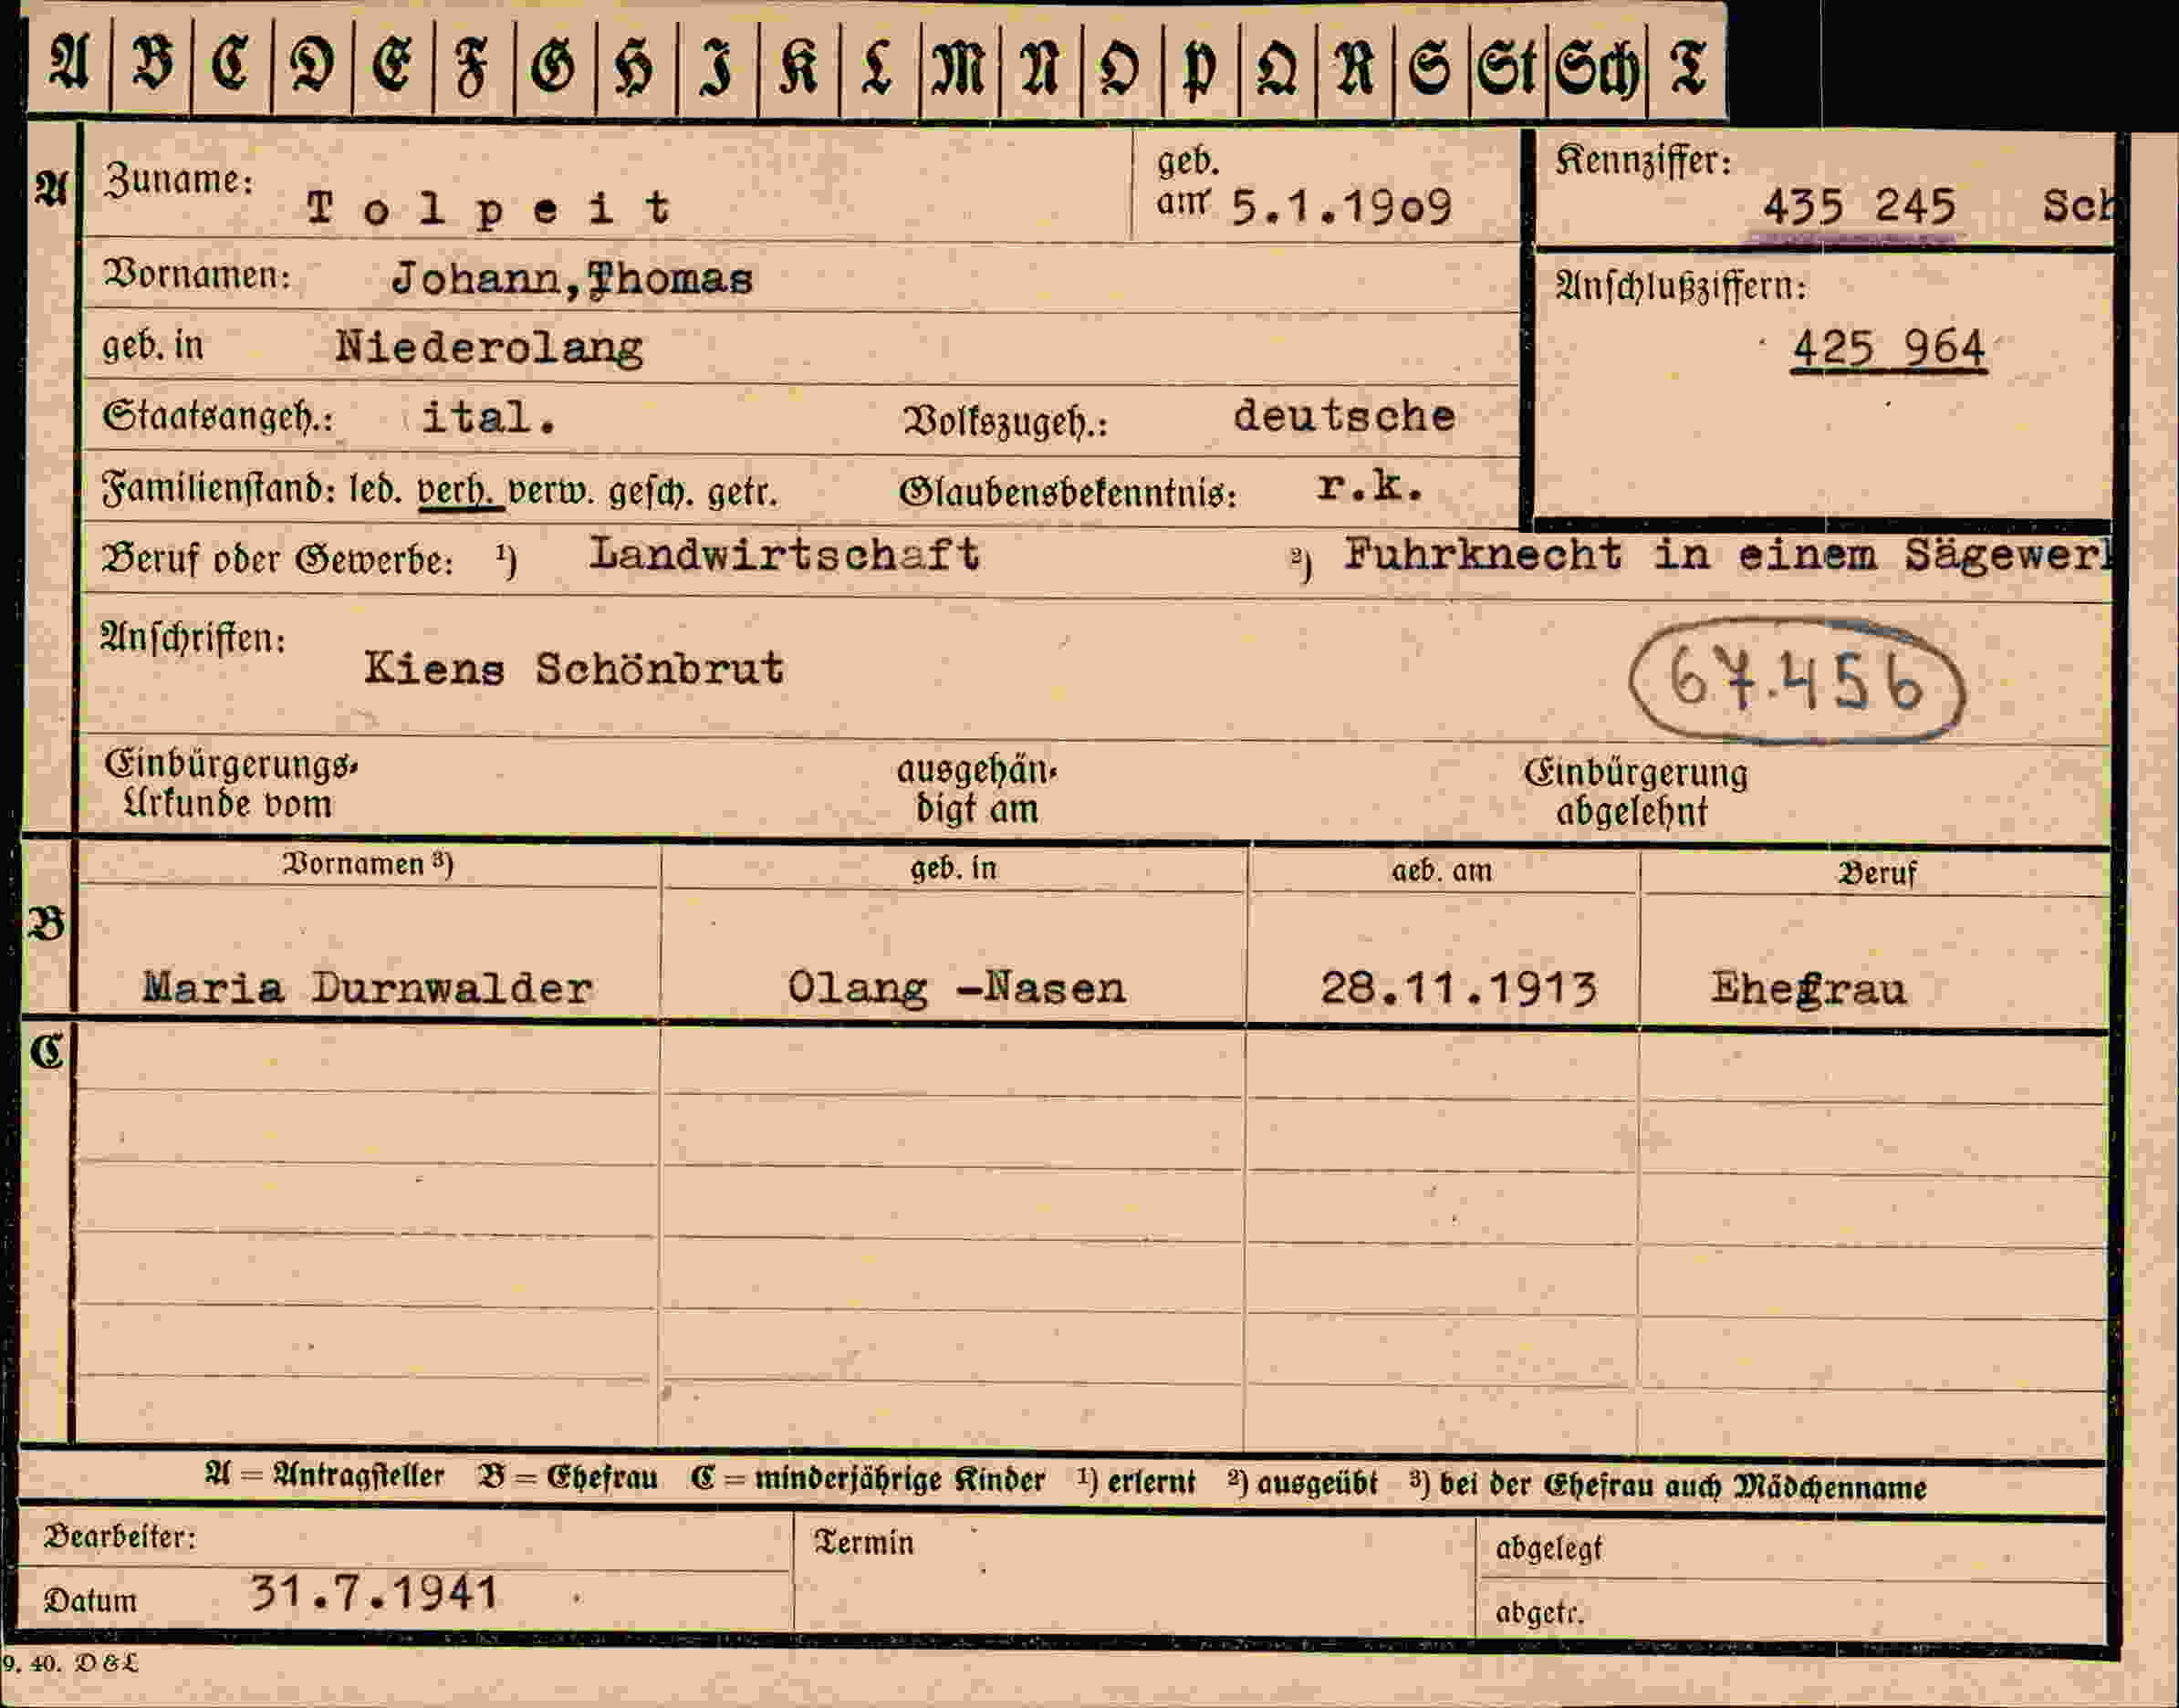 A B C D E F G H I K L M N O P Q R S St Sch T
A Zuname: Tolpeit geb. am 5.1.1909 Kennziffer: 435 245 Sch
Vornamen: Johann,Thomas Anschlußziffern:
geb. in Niederolang 425 964
Staatsangeh.: ital. Volkszugeh.: deutsche
Familienstand: led. verh. verw. gesch. getr. Glaubensbekenntnis: r.k.
Beruf oder Gewerbe: ¹) Landwirtschaft ²) Fuhrknecht in einem Sägewerk
Anschriften: Kiens Schönbrut 67.456
Einbürgerungs- ausgehän- Einbürgerung
Urkunde vom digt am abgelehnt
Vornamen ³) geb. in geb. am Beruf
B
Maria Durnwalder Olang -Nasen 28.11.1913 Ehefrau
C
A = Antragsteller B = Ehefrau C = minderjährige Kinder ¹) erlernt ²) ausgeübt ³) bei der Ehefrau auch Mädchenname
Bearbeiter: Termin abgelegt
Datum 31.7.1941 abgetr.
9. 40. D & L